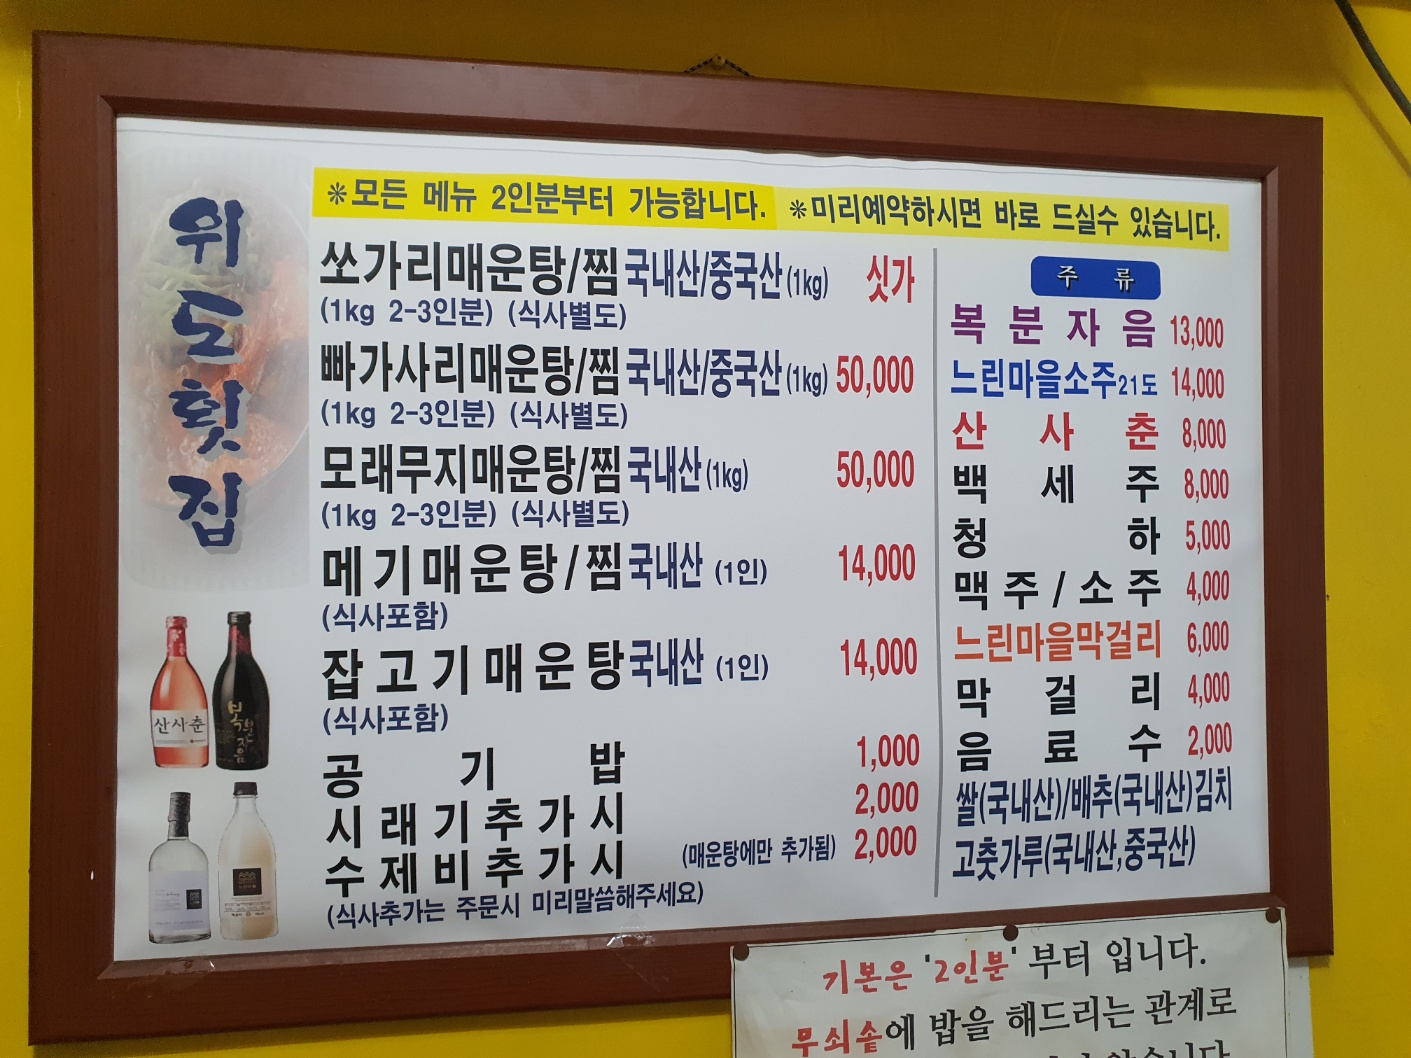 위도횟집
※모든 메뉴 2인분부터 가능합니다. ※미리예약하시면 바로 드실수 있습니다.
쏘가리매운탕/찜 국내산/중국산(1kg) 싯가
(1kg 2-3인분) (식사별도)
빠가사리매운탕/찜 국내산/중국산(1kg) 50,000
(1kg 2-3인분) (식사별도)
모래무지매운탕/찜 국내산(1kg) 50,000
(1kg 2-3인분) (식사별도)
메기매운탕/찜 국내산 (1인) 14,000
(식사포함)
잡고기매운탕 국내산 (1인) 14,000
(식사포함)
공기밥 1,000
시래기추가시 2,000
수제비추가시 (매운탕에만 추가됨) 2,000
(식사추가는 주문시 미리말씀해주세요)
주류
복분자음 13,000
느린마을소주21도 14,000
산사춘 8,000
백세주 8,000
청하 5,000
맥주/소주 4,000
느린마을막걸리 6,000
막걸리 4,000
음료수 2,000
쌀(국내산)/배추(국내산)김치
고춧가루(국내산,중국산)
산사춘
복분자음
기본은 '2인분' 부터 입니다.
무쇠솥에 밥을 해드리는 관계로